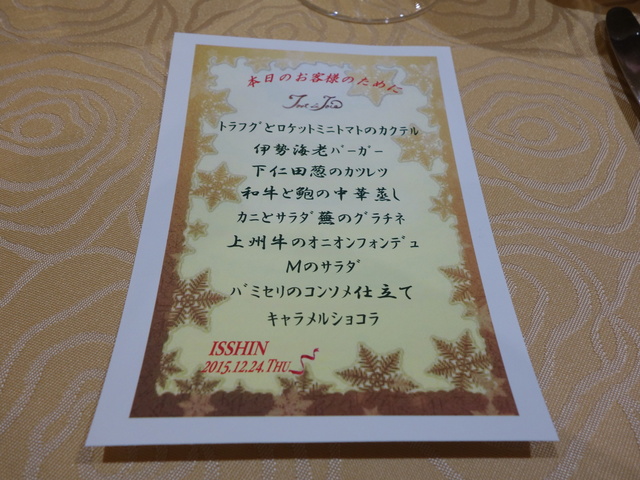 本日のお客様のために
トラフグとロケットミニトマトのカクテル
伊勢海老バーガー
下仁田葱のカツレツ
和牛と鮑の中華蒸し
カニとサラダ蕪のグラチネ
上州牛のオニオンフォンデュ
Mのサラダ
バミセリのコンソメ仕立て
キャラメルショコラ
ISSHIN
2015.12.24.THU